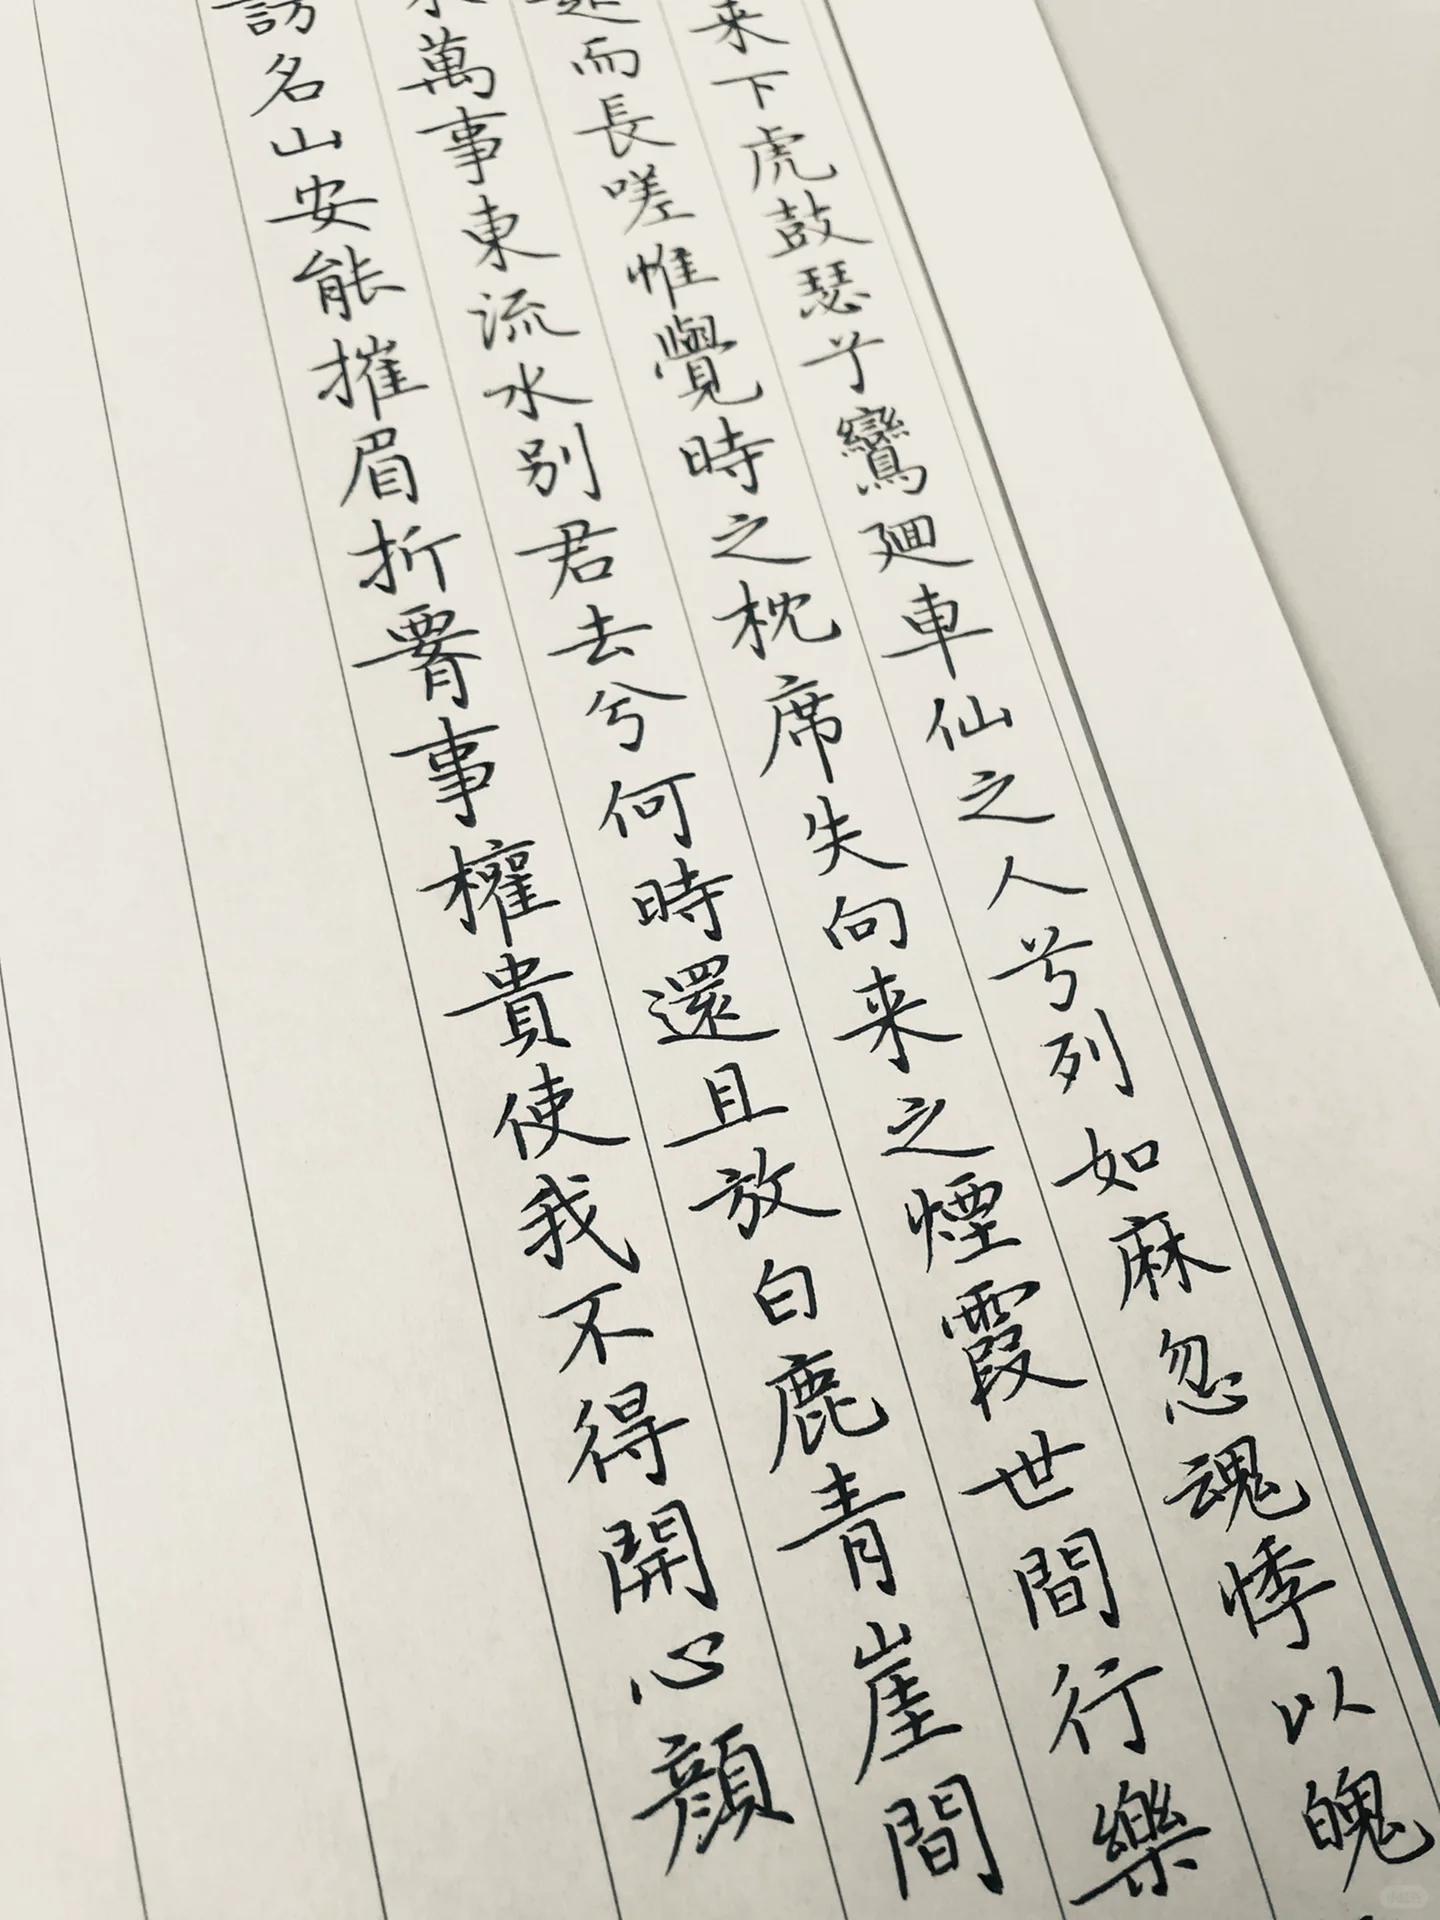 来下虎鼓瑟兮鸞廻車仙之人兮列如麻忽魂悸以魄
起而長嗟惟覺時之枕席失向来之煙霞世間行樂
萬事東流水别君去兮何時還且放白鹿青崖間
訪名山安能摧眉折腰事權貴使我不得開心顔